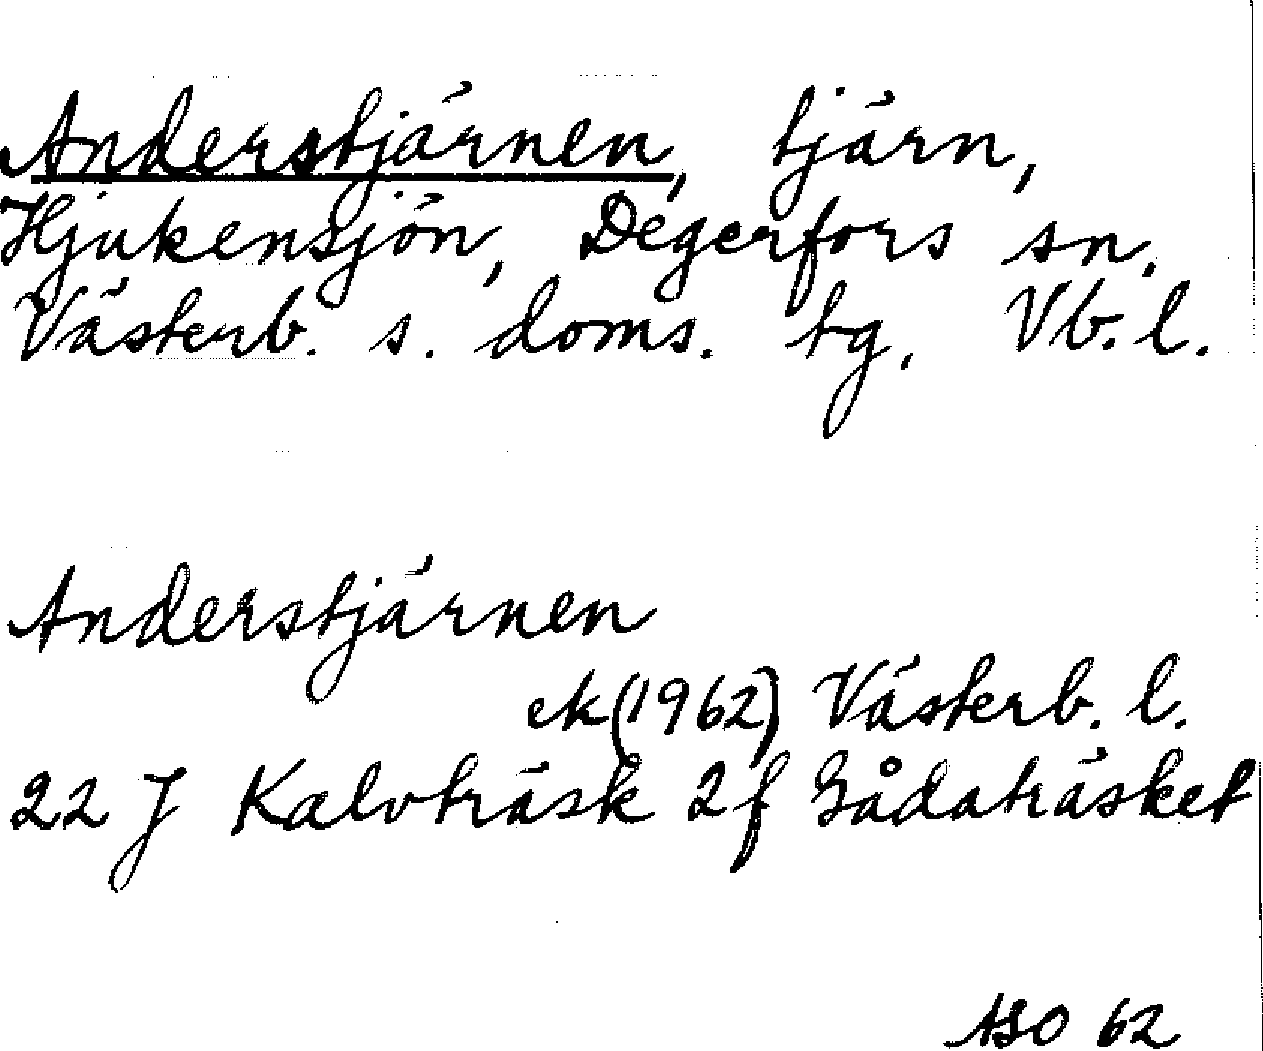 Anderstjärnen, tjärn,
Hjukensjön, Degerfors sn.
Västerb. s. doms. tg. Vb. l.
Anderstjärnen
ek (1962) Västerb. l.
22 J Kalvträsk 2f Gådaträsket
ASO 62